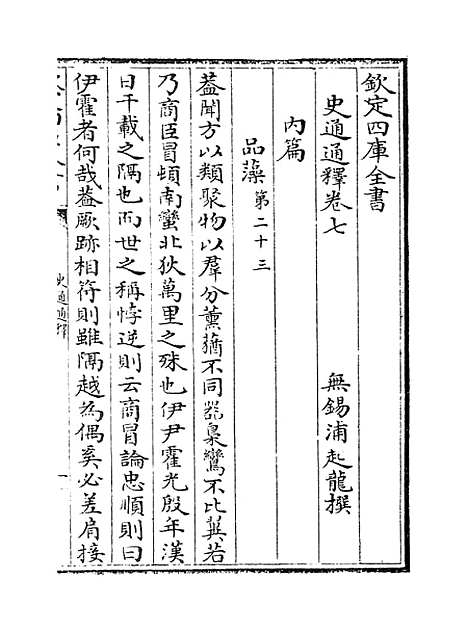 欽定四庫全書
史通通釋卷七
無錫浦起龍撰
内篇
品藻第二十三
蓋聞方以類聚物以羣分薰蕕不同器梟鸞不比翼若
乃商臣冒頓南蠻北狄萬里之殊也伊尹霍光殷年漢
日千載之隔也而世之稱悖逆則云商冒論忠順則曰
伊霍者何哉蓋厥跡相符則雖隔越為偶奚必差肩接
史通通釋
一